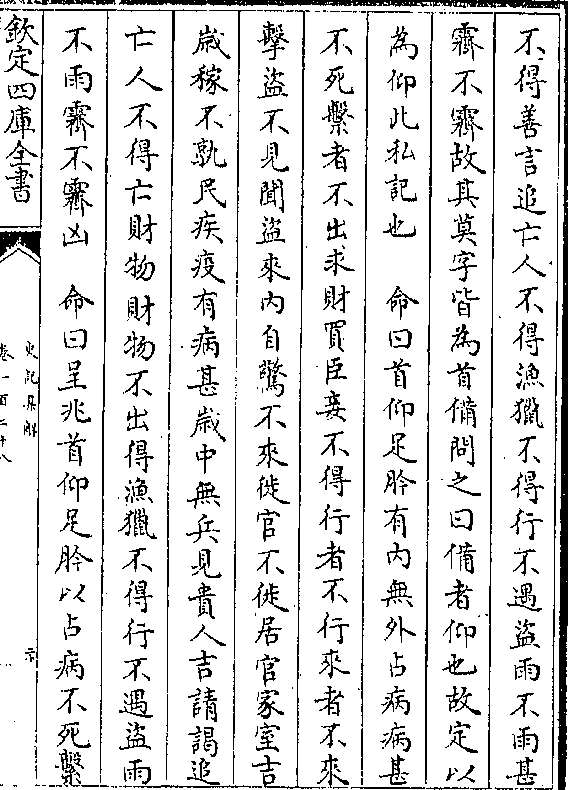 不得善言追亡人不得漁獵不得行不遇盜雨不雨甚
霽不霽故其莫字皆為首備問之曰備者仰也故定以
為仰此私記也　命曰首仰足肣有内無外占病病甚
不死繫者不出求財買臣妾不得行者不行來者不來
擊盜不見聞盜來内自驚不來徙官不徙居官家室吉
歲稼不孰民疾疫有病甚歲中無兵見貴人吉請謁追
亡人不得亡財物財物不出得漁獵不得行不遇盜雨
不雨霽不霽凶　命曰呈兆首仰足肣以占病不死繫
欽定四庫全書
史記集解
卷一百二十八